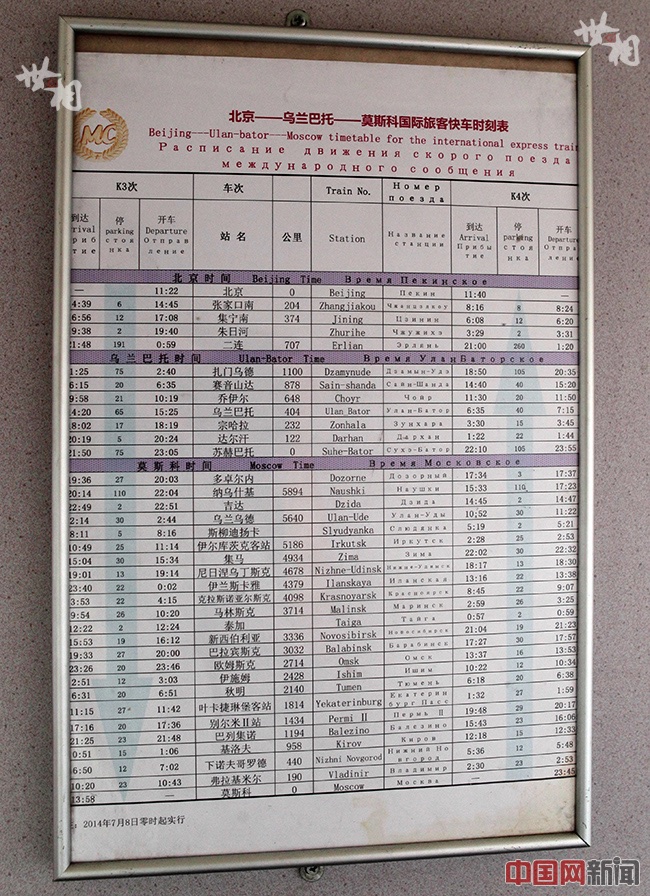 世相
世相
MC
北京——乌兰巴托——莫斯科国际旅客快车时刻表
Beijing---Ulan-bator---Moscow timetable for the international express train
Расписание движения скорого поезда
международного сообщения
K3次 车次 Train No. Номер поезда K4次
到达 停 开车 到达 停 开车
rival parking Departure 站名 公里 Station Название станции Arrival parking Departure
Прибытие стоянка Отправление Прибытие стоянка Отправление
北京时间 Beijing Time Время Пекинское
— 11:22 北京 0 Beijing Пекин 11:40
4:39 6 14:45 张家口南 204 Zhangjiakou Чжанцзякоу 8:16 8 8:24
6:56 12 17:08 集宁南 374 Jining Цзинин 6:08 12 6:20
9:38 2 19:40 朱日河 Zhurihe Чжужихэ 3:29 2 3:31
1:48 191 0:59 二连 707 Erlian Эрлянь 21:00 260 1:20
乌兰巴托时间 Ulan-Bator Time Время УланБаторское
1:25 75 2:40 扎门乌德 1100 Dzamynude Дзамын-Удэ 18:50 105 20:35
6:15 20 6:35 赛音山达 878 Sain-shanda Саин-Шанда 14:40 40 15:20
9:58 21 10:19 乔伊尔 648 Choyr Чойр 11:30 20 11:50
4:20 65 15:25 乌兰巴托 404 Ulan_Bator Улан-Батор 6:35 40 7:15
8:02 17 18:19 宗哈拉 232 Zonhala Зунхара 3:30 15 3:45
20:19 5 20:24 达尔汗 122 Darhan Дархан 1:22 22 1:44
21:50 75 23:05 苏赫巴托 0 Suhe-Bator Сухэ-Батор 22:10 105 23:55
莫斯科时间 Moscow Time Время Московское
19:36 27 20:03 多卓尔内 Dozorne Дозорный 17:34 3 17:37
20:14 110 22:04 纳乌什基 5894 Naushki Наушки 15:33 110 17:23
22:49 2 22:51 吉达 Dzida Дзида 14:45 2 14:47
2:14 30 2:44 乌兰乌德 5640 Ulan-Ude Улан-Уды 10:52 30 11:22
8:11 5 8:16 斯柳迪扬卡 Slyudyanka Слюдянка 5:19 2 5:21
10:49 25 11:14 伊尔库茨克客站 5186 Irkutsk Иркутск 2:28 25 2:53
15:04 30 15:34 集马 4934 Zima Зима 22:02 30 22:32
19:01 13 19:14 尼日涅乌丁斯克 4678 Nizhne-Udinsk Нижне-Удинск 18:17 13 18:30
23:40 22 0:02 伊兰斯卡雅 4379 Ilanskaya Иланская 13:16 22 13:38
3:53 22 4:15 克拉斯诺亚尔斯克 4098 Krasnoyarsk Красноярск 8:45 22 9:07
9:54 26 10:20 马林斯克 3714 Malinsk Маринск 2:59 26 3:25
12:22 2 12:24 泰加 Taiga Тайга 0:57 2 0:59
15:53 19 16:12 新西伯利亚 3336 Novosibirsk Новосибирск 21:04 19 21:23
19:33 27 20:00 巴拉宾斯克 3032 Balabinsk Барабинск 17:27 30 17:57
23:26 20 23:46 欧姆斯克 2714 Omsk Омск 13:37 16 13:53
2:51 12 3:03 伊施姆 2428 Ishim Ишим 10:22 12 10:34
6:31 20 6:51 秋明 2140 Tumen Тюмень 6:18 20 6:38
11:15 27 11:42 叶卡捷琳堡客站 1814 Yekaterinburg Екатеринбург Пасс 1:32 27 1:59
17:16 20 17:36 别尔米Ⅱ站 1434 Permi Ⅱ Пермь Ⅱ 19:48 29 20:17
21:25 23 21:48 巴列集诺 1194 Balezino Балезино 15:43 23 16:06
0:51 15 1:06 基洛夫 958 Kirov Киров 12:18 15 12:33
6:50 12 7:02 下诺夫哥罗德 440 Nizhni Novgorod Нижний Новгород 5:36 12 5:48
10:20 23 10:43 弗拉基米尔 190 Vladinir Владимир 2:30 23 2:53
13:58 — 莫斯科 0 Moscow Москва — 23:45
: 2014年7月8日零时起实行
中国网新闻